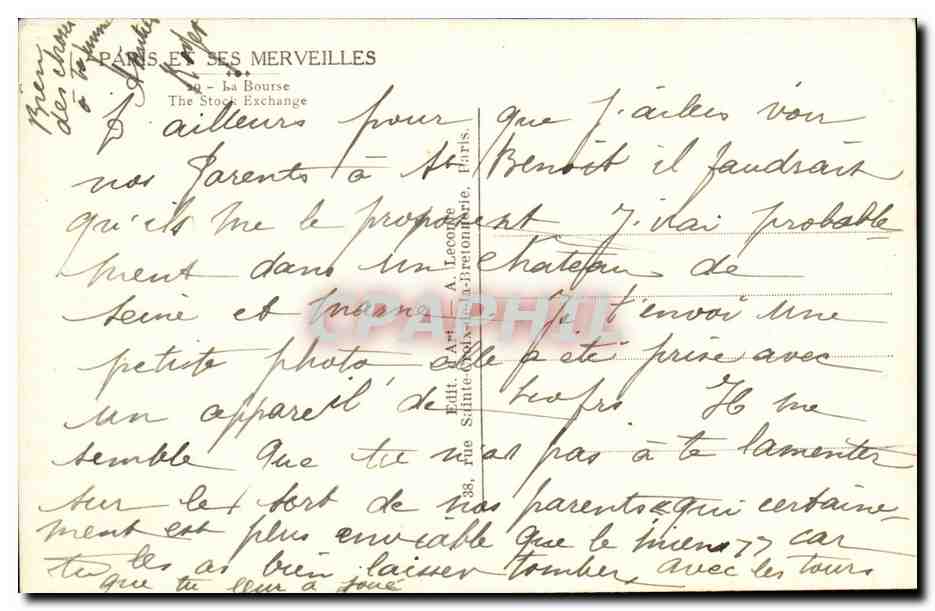 PARIS ET SES MERVEILLES
29 - La Bourse
The Stock Exchange
D'ailleurs pour que j'ailles voir
nos parents à St Benoît il faudrait
qu'ils me le proposent J'irai probable
ment dans un chateau de
seine et marne. Je t'envoi une
petite photo elle a été prise avec
un appareil de frs Il me
semble que tu n'as pas à te lamenter
sur le sort de nos parents "qui certaine-
ment est plus enviable que le mien" car
tu les as bien laisser tomber avec les tours
que tu leur a joué
Bien
des choses
à ta femme
Amitiés
Roger
Edit. d'Art — A. Leconte
38, rue Sainte-Croix-de-la-Bretonnerie, Paris.
CPAPHIL